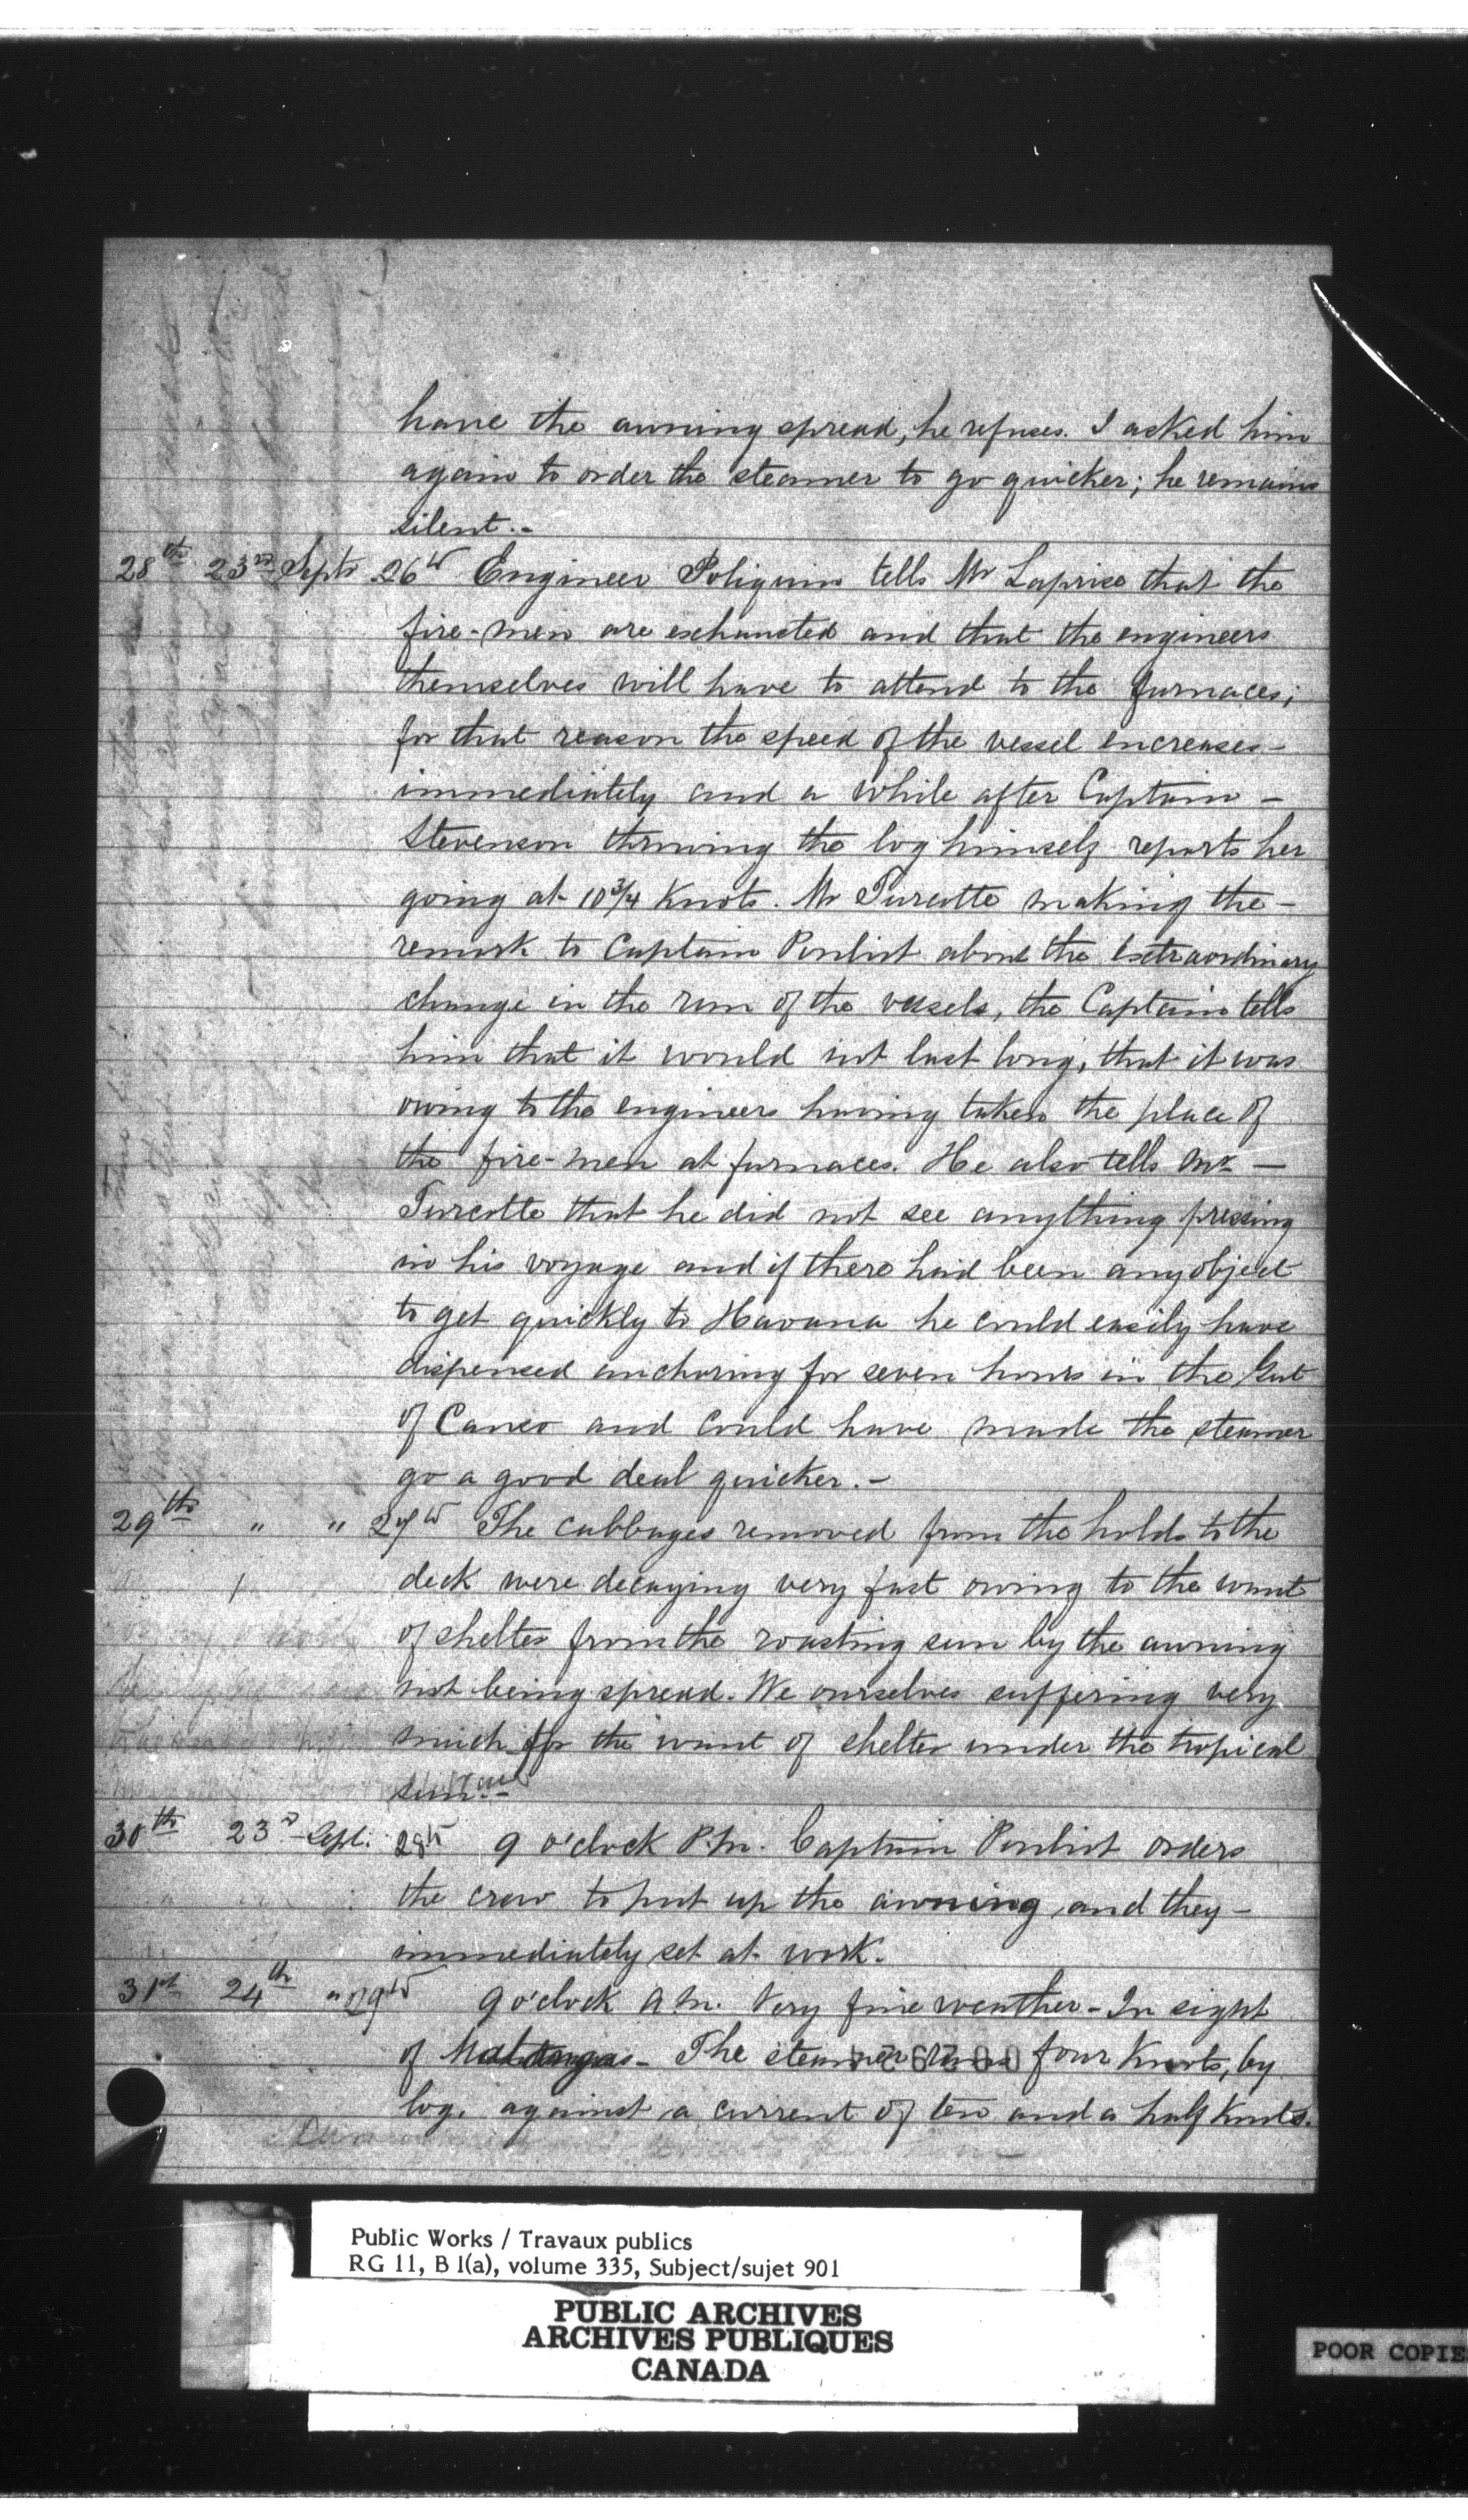 have the awning spread, he refuses. I asked him
again to order the steamer to go quicker; he remains
silent.-
28th 23rd Septr 26th Engineer Poliquin tells Mr Laprise that the
fire-men are exhausted and that the engineers
themselves will have to attend to the furnaces;
for that reason the speed of the vessel encreases-
immediately and a while after Captain -
Stevenson throwing the log himself reports her
going at 10 3/4 Knots. Mr Turcotte making the -
remark to Captain Pouliot about the extraordinary
change in the run of the vessels, the Captain tells
him that it would not last long, that it was
owing to the engineers having taken the place of
the fire-men at furnaces. He also tells Mr -
Turcotte that he did not see anything pressing
in his voyage and if there had been any object
to get quickly to Havana he could easily have
dispensed anchoring for seven hours in the Gut
of Canso and could have made the steamer
go a good deal quicker.-
29th " " 27th The cabbages removed from the holds to the
deck were decaying very fast owing to the want
of shelter from the roasting sun by the awning
not being spread. We ourselves suffering very
much for the want of shelter under the tropical
sun.-
30th 23rd Sept. 28th 9 o'clock P.M. Captain Pouliot orders
the crew to put up the awning, and they -
immediately set at work.
31st 24th " 29th 9 o'clock A.M. Very fine weather - In sight
of - The steamer runs four Knots, by
log, against a current of two and a half Knots.
Public Works / Travaux publics
RG 11, B 1(a), volume 335, Subject/sujet 901
PUBLIC ARCHIVES
ARCHIVES PUBLIQUES
CANADA
POOR COPIE